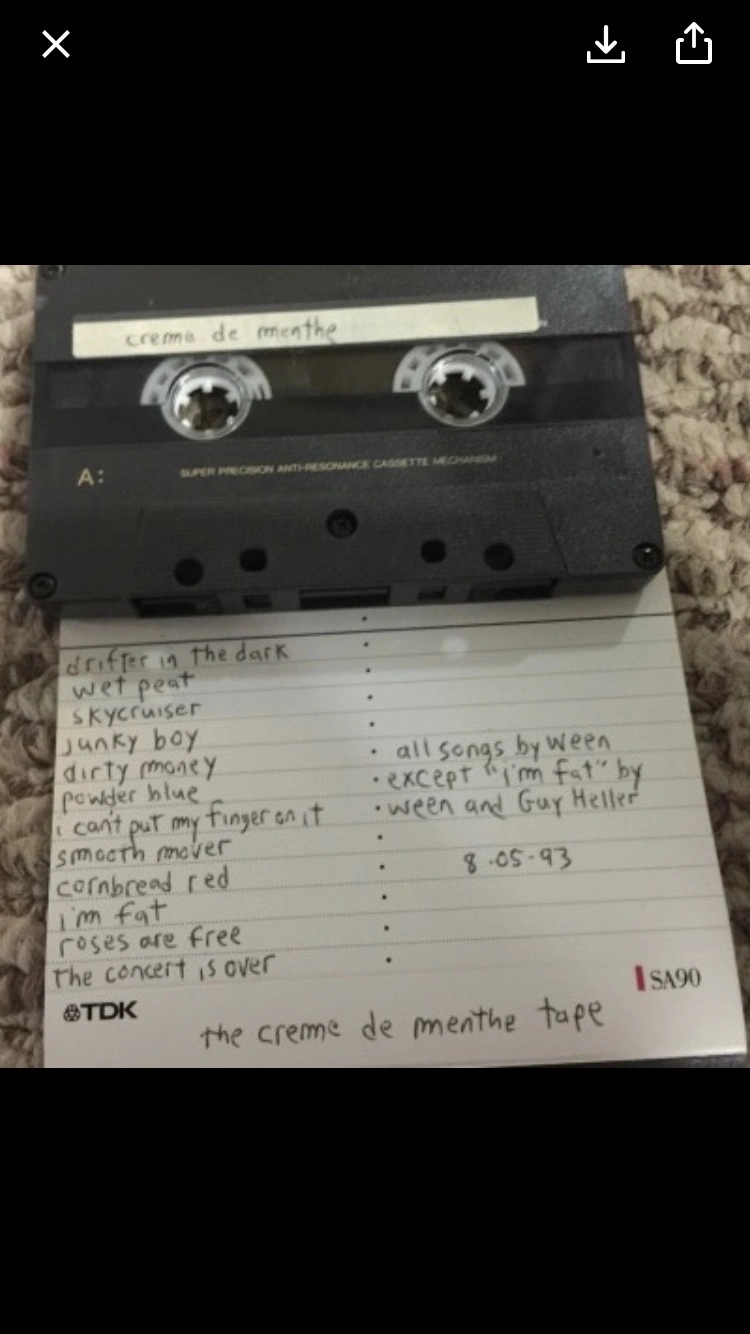 creme de menthe
A:
SUPER PRECISION ANTI-RESONANCE CASSETTE MECHANISM
drifter in the dark
wet peat
skycruiser
junky boy
dirty money
powder blue
i can't put my finger on it
smooth mover
cornbread red
i'm fat
roses are free
the concert is over
all songs by ween
except "i'm fat" by
ween and Guy Heller
8.05.93
TDK
SA90
the creme de menthe tape